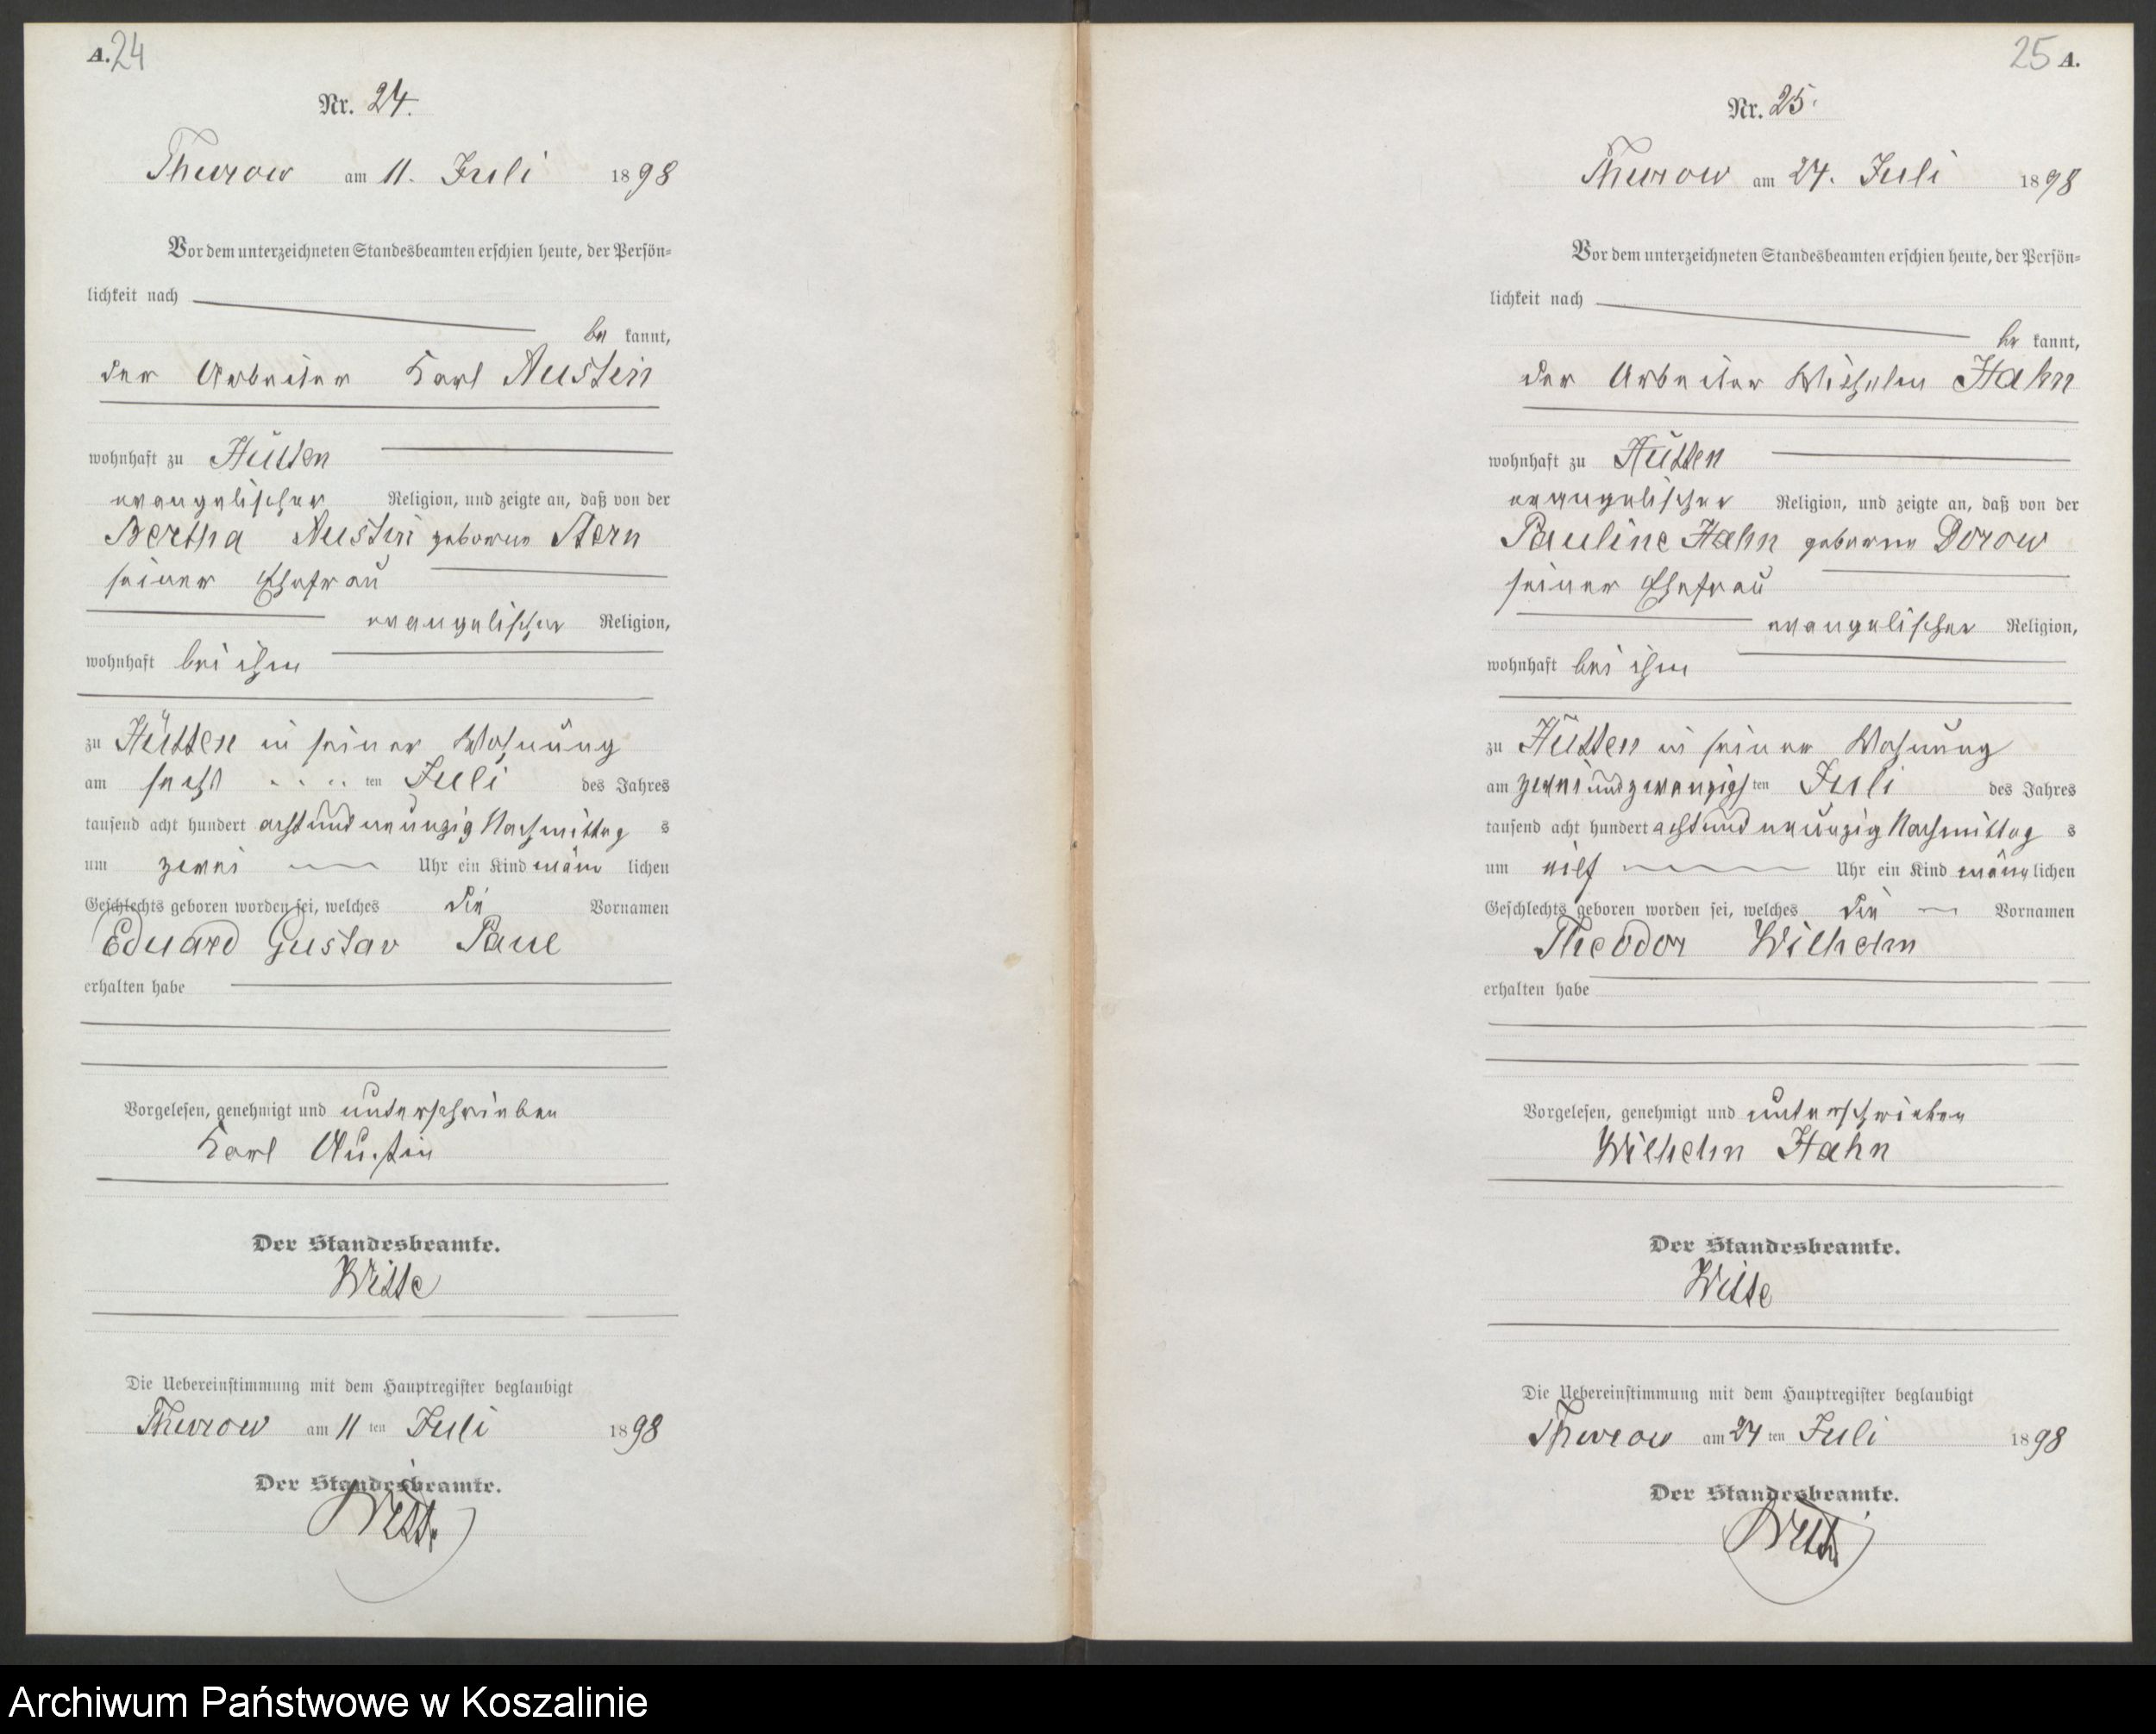 A. 24
Nr. 24.
Thurow am 11. Juli 1898
Vor dem unterzeichneten Standesbeamten erschien heute, der Persön-
lichkeit nach
be kannt,
der Arbeiter Karl Austin
wohnhaft zu Hütten
evangelischer Religion, und zeigte an, daß von der
Bertha Austin geborne Stern
seiner Ehefrau
evangelischer Religion,
wohnhaft bei ihm
zu Hütten in seiner Wohnung
am sechs ten Juli des Jahres
tausend acht hundert acht und neunzig Nachmittag s
um zwei Uhr ein Kind männ lichen
Geschlechts geboren worden sei, welches die Vornamen
Eduard Gustav Paul
erhalten habe
Vorgelesen, genehmigt und unterschrieben
Karl Austin
Der Standesbeamte.
Witte
Die Uebereinstimmung mit dem Hauptregister beglaubigt
Thurow am 11 ten Juli 1898
Der Standesbeamte.
Witte
25 A.
Nr. 25.
Thurow am 24. Juli 1898
Vor dem unterzeichneten Standesbeamten erschien heute, der Persön-
lichkeit nach
be kannt,
der Arbeiter Wilhelm Hahn
wohnhaft zu Hütten
evangelischer Religion, und zeigte an, daß von der
Pauline Hahn geborne Dorow
seiner Ehefrau
evangelischer Religion,
wohnhaft bei ihm
zu Hütten in seiner Wohnung
am zweiundzwanzigs ten Juli des Jahres
tausend acht hundert acht und neunzig Nachmittag s
um elf Uhr ein Kind männ lichen
Geschlechts geboren worden sei, welches die Vornamen
Theodor Wilhelm
erhalten habe
Vorgelesen, genehmigt und unterschrieben
Wilhelm Hahn
Der Standesbeamte.
Witte
Die Uebereinstimmung mit dem Hauptregister beglaubigt
Thurow am 24 ten Juli 1898
Der Standesbeamte.
Witte
Archiwum Państwowe w Koszalinie